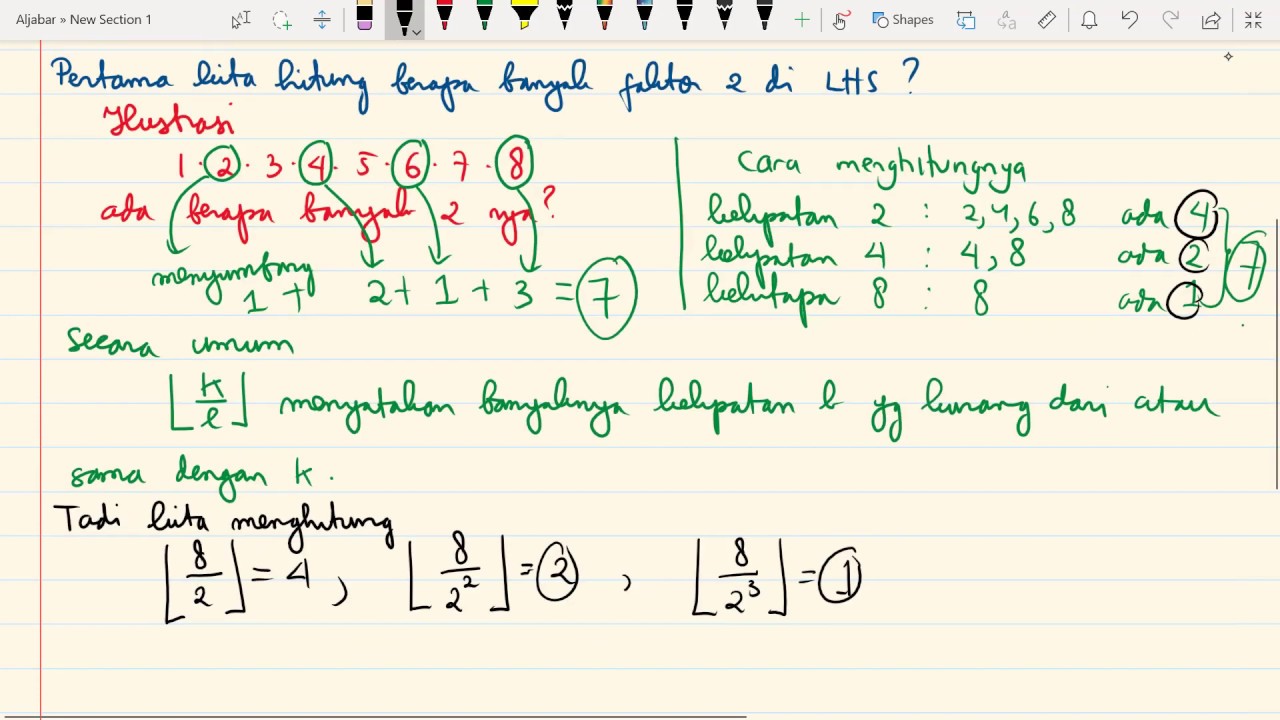 Aljabar » New Section 1
Shapes
Pertama kita hitung berapa banyak faktor 2 di LHS ?
Ilustrasi
1 · 2 · 3 · 4 · 5 · 6 · 7 · 8
ada berapa banyak 2 nya ?
menyumbang
1 + 2 + 1 + 3 = 7
Cara menghitungnya
kelipatan 2 : 2, 4, 6, 8 ada 4
kelipatan 4 : 4, 8 ada 2
kelutapa 8 : 8 ada 1
7
Secara umum
⌊k/l⌋ menyatakan banyaknya kelipatan l yg kurang dari atau
sama dengan k .
Tadi kita menghitung
⌊8/2⌋ = 4 , ⌊8/2²⌋ = 2 , ⌊8/2³⌋ = 1